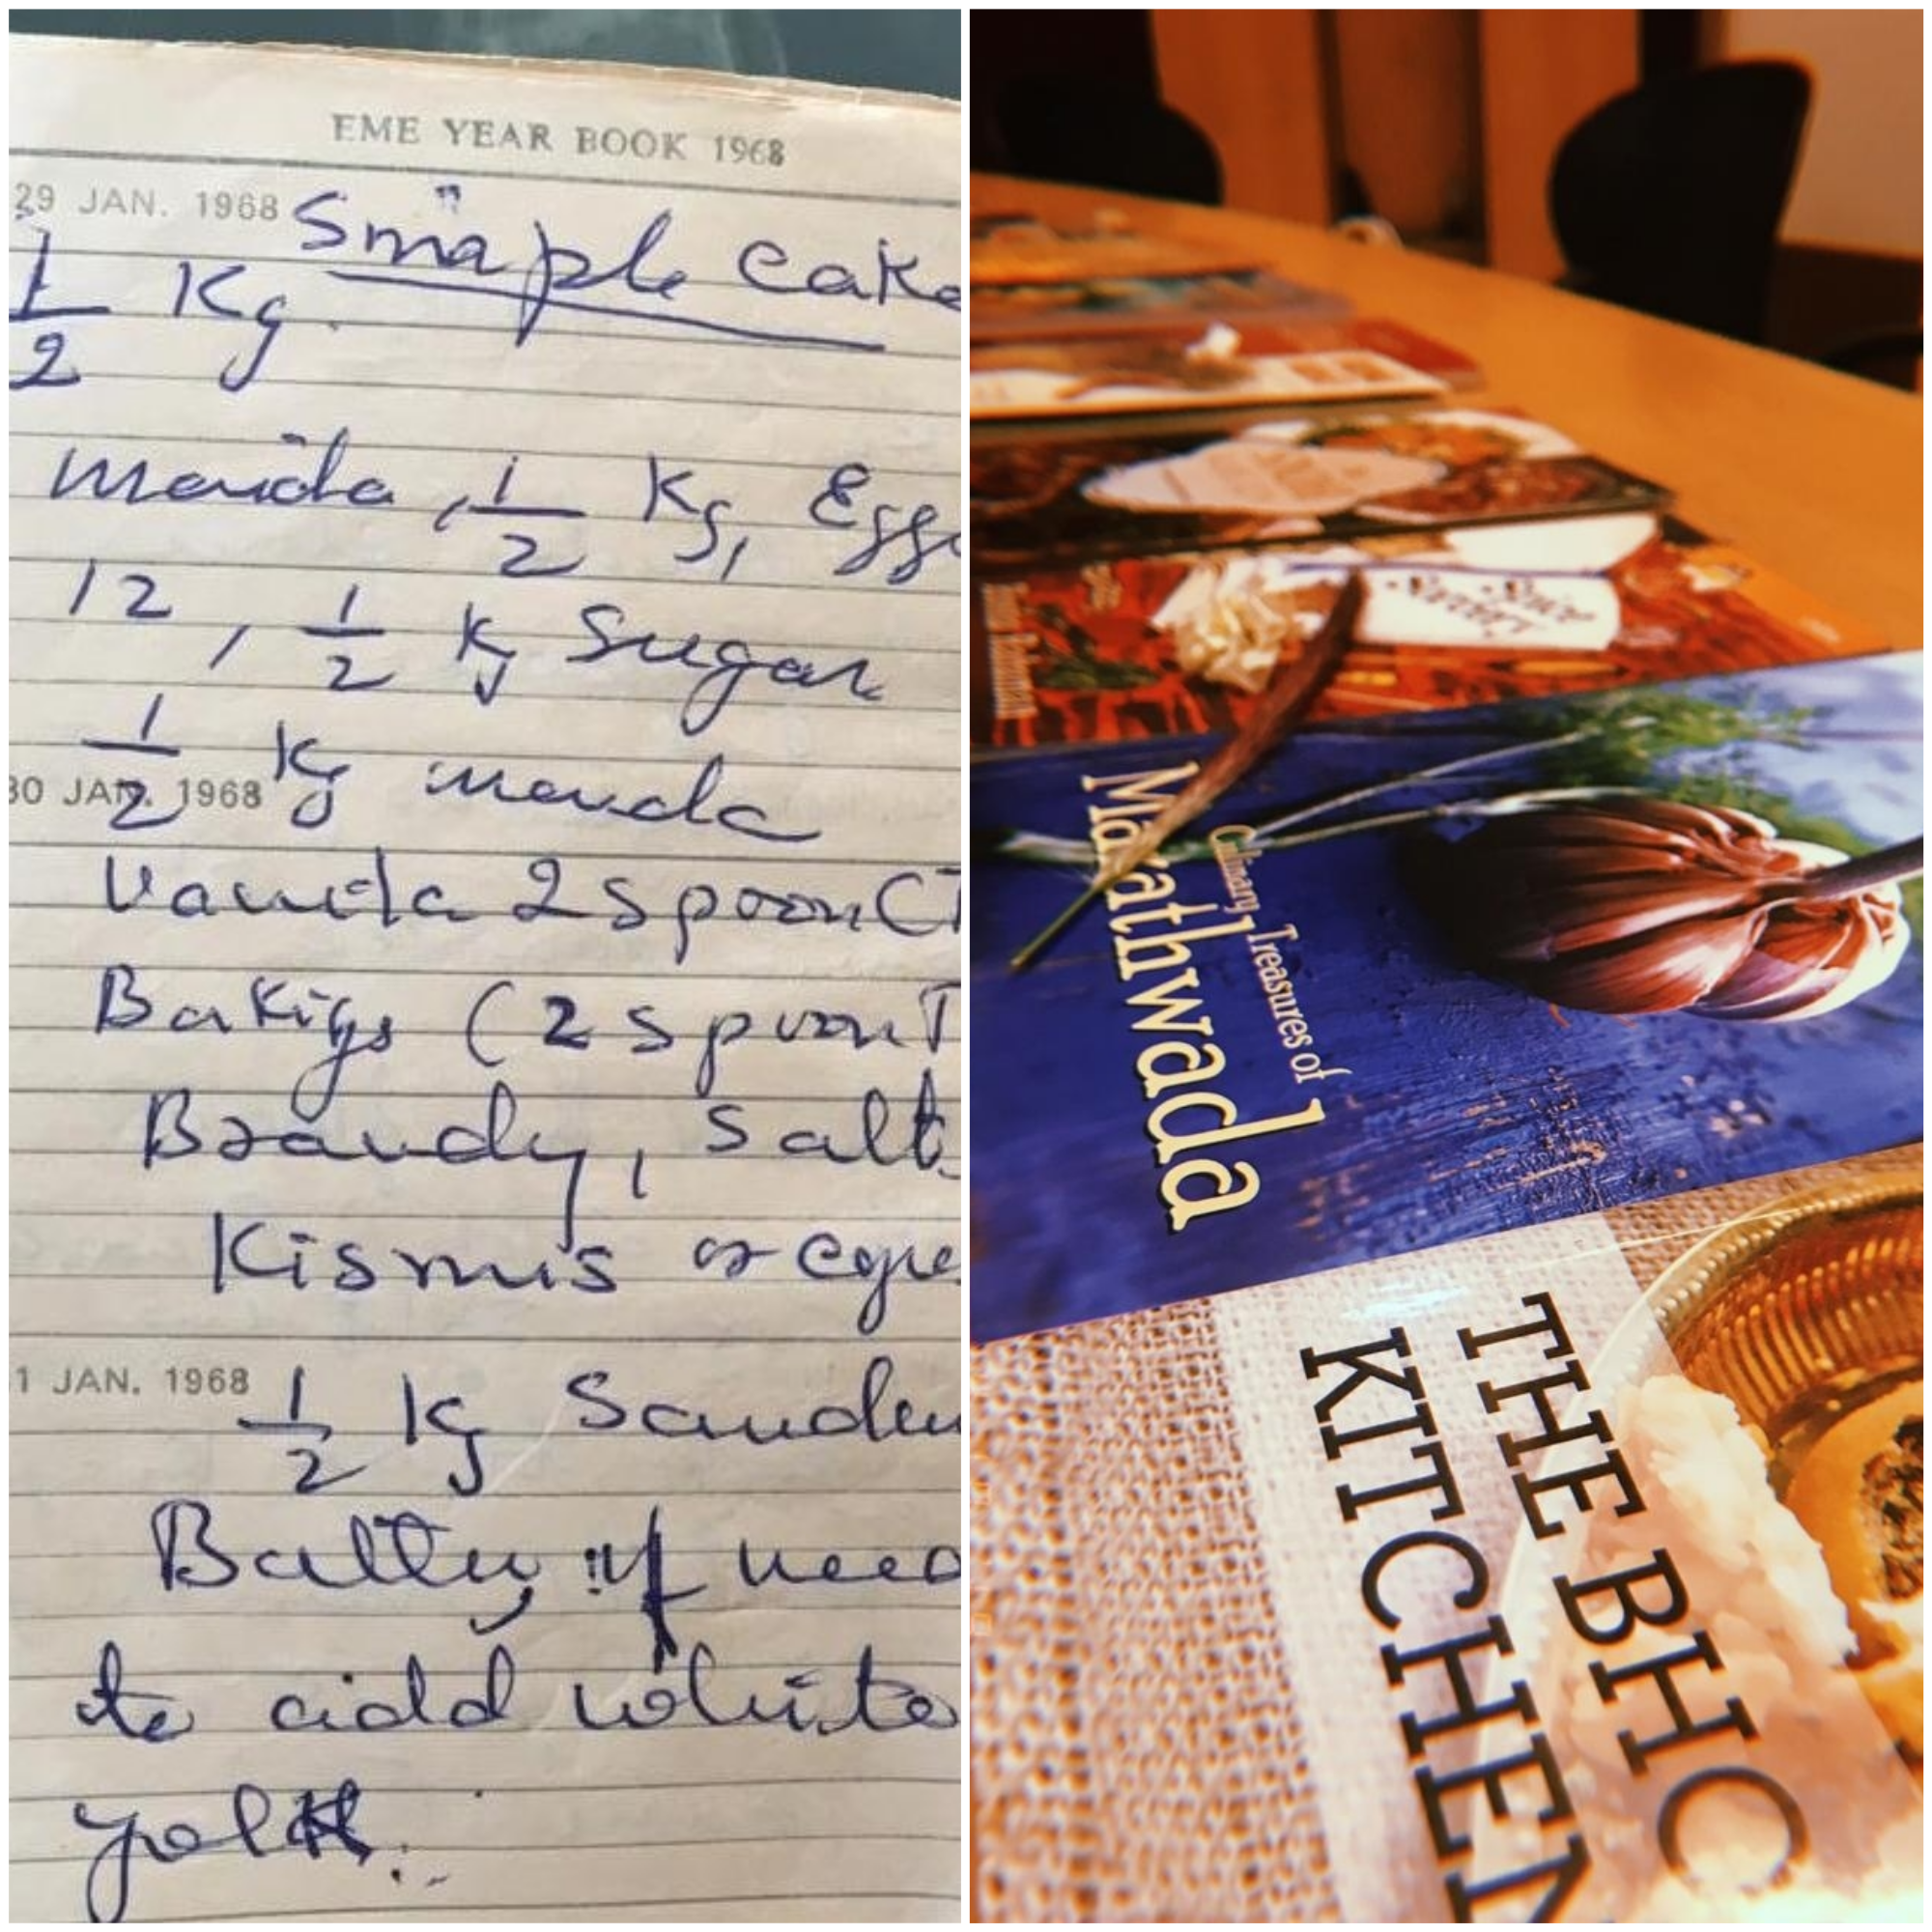 EME YEAR BOOK 1968
29 JAN. 1968
Smaple Cake
1/2 Kg
Maida, 1/2 Kg, Eggs
12, 1/2 Kg Sugar
1/2 Kg maida
30 JAN. 1968
Vanila 2 Spoon (T
Bakigs (2 spoon T
Brandy, Salt
Kismis or
1 JAN. 1968
1/2 Kg
if need
to add white
yolk.
Culinary Treasures of
Marathwada
THE BHO
KITCHEN